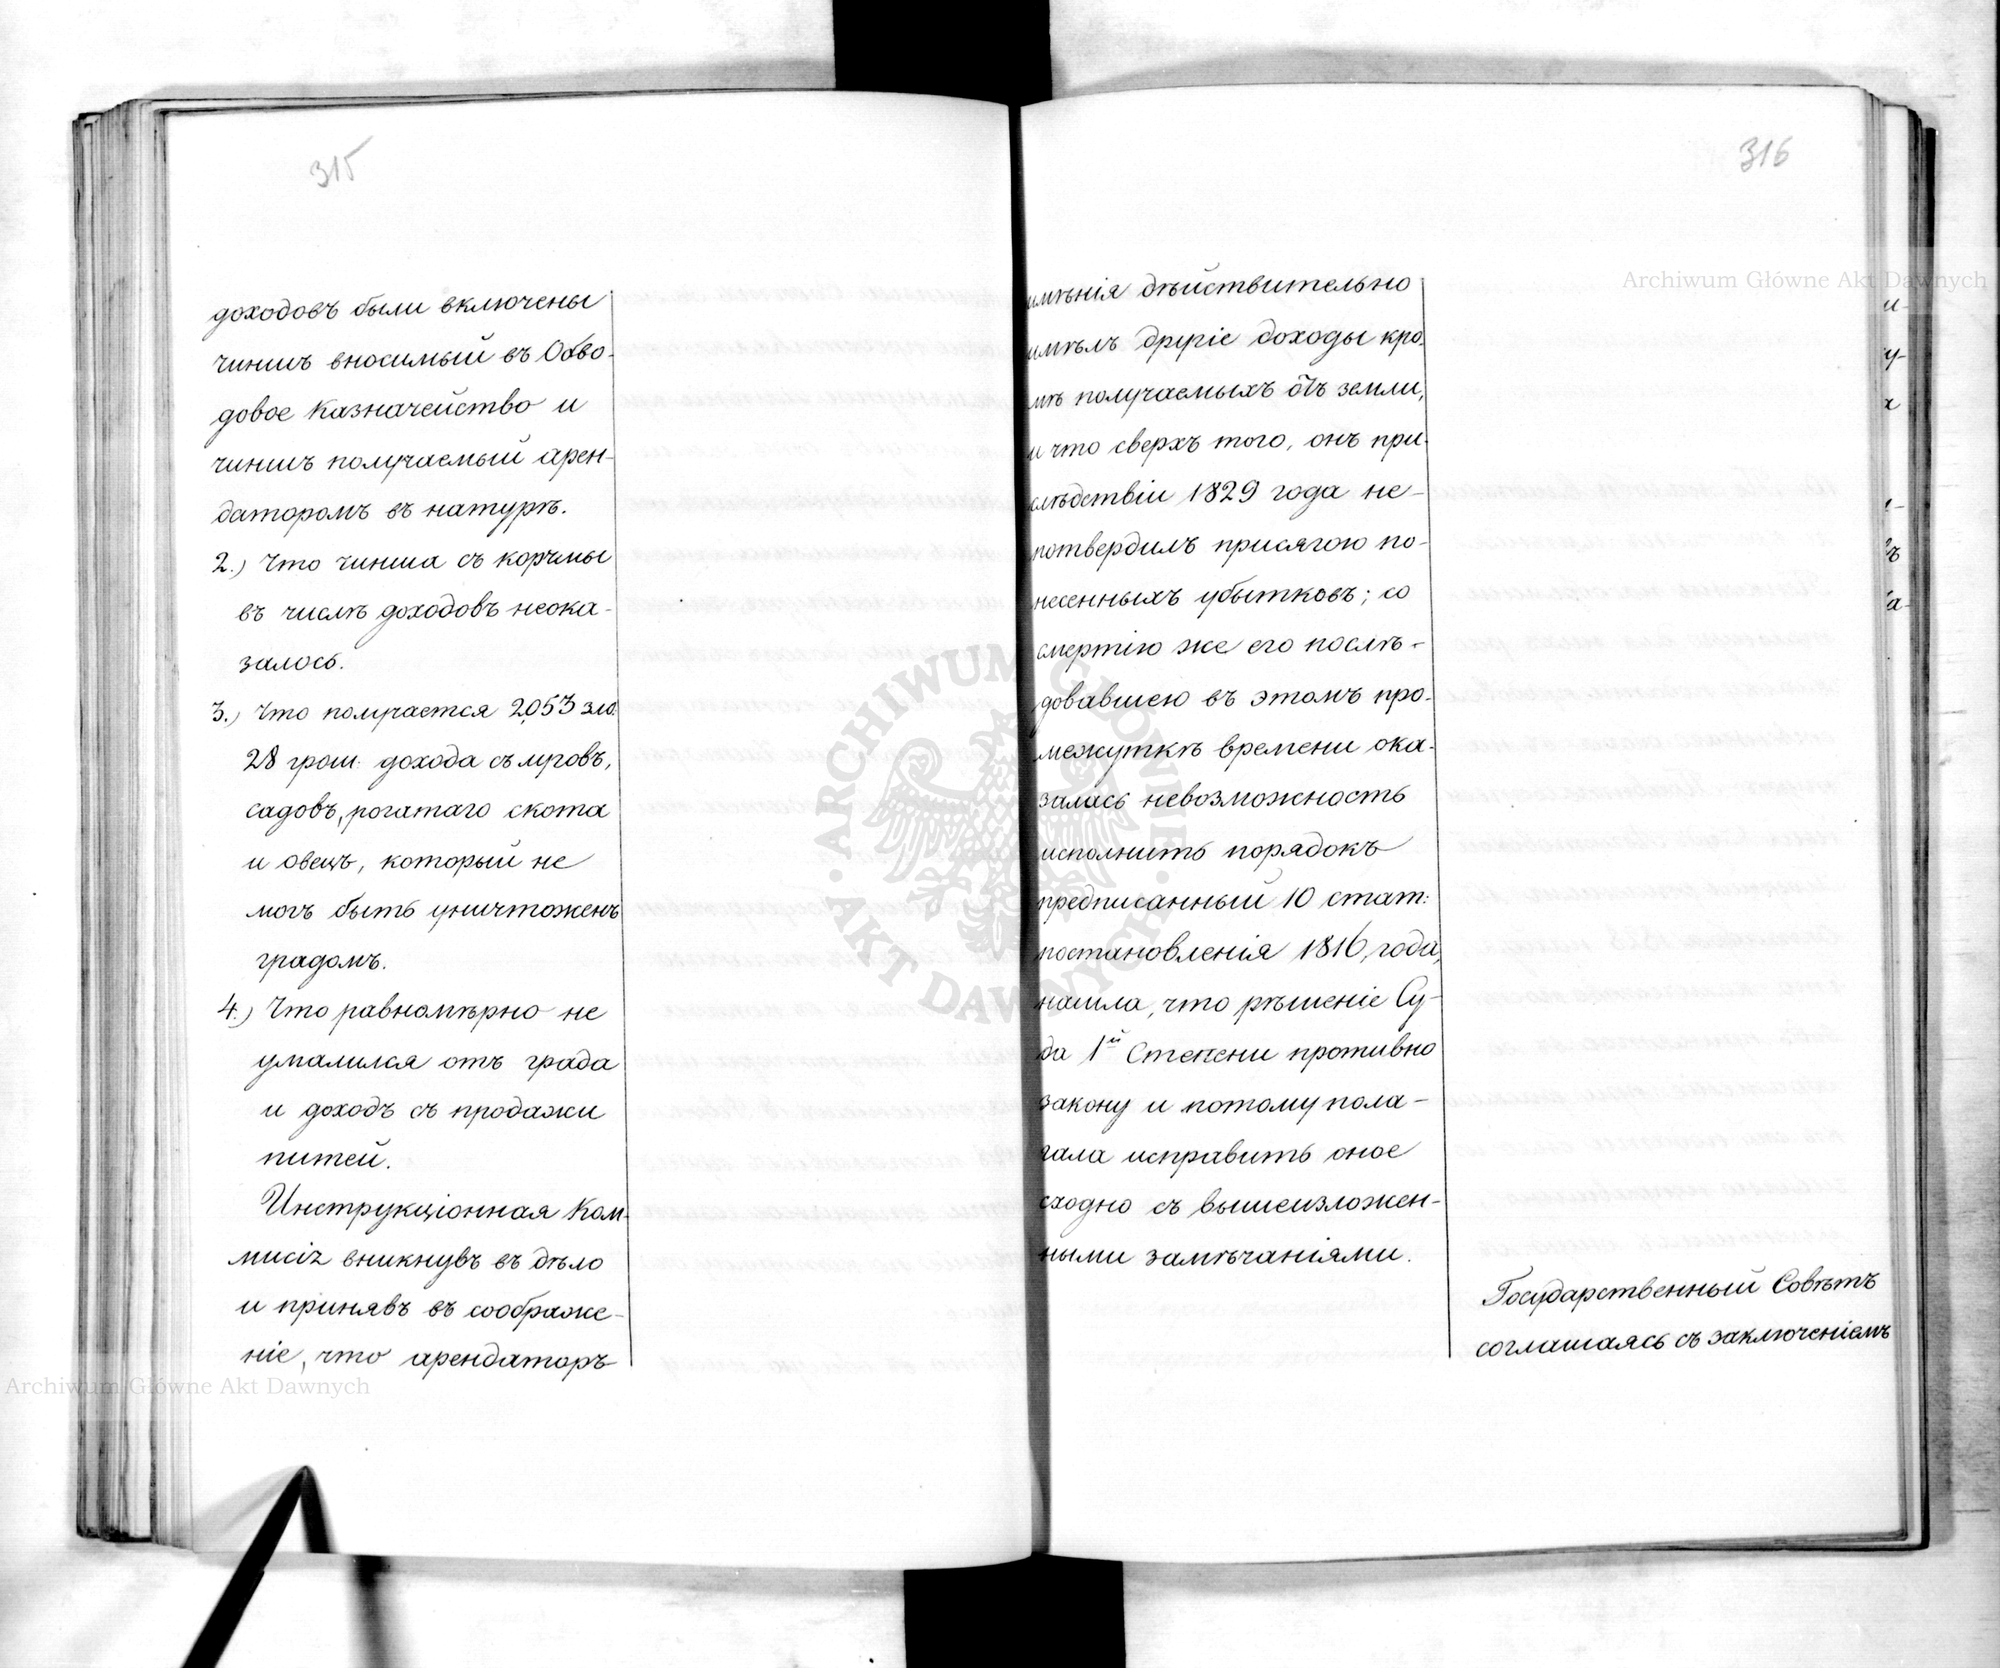 315
доходовъ были включены
чиншъ вносимый въ Обво-
довое Казначейство и
чиншъ получаемый арен-
даторомъ въ натурѣ.
2.) Что чинша съ корчмы
въ числѣ доходовъ неока-
залось.
3.) Что получается 2,053 зло.
28 грош: дохода съ луговъ,
садовъ, рогатаго скота
и овецъ, который не
могъ быть уничтоженъ
градомъ.
4.) Что равномѣрно не
умалился отъ града
и доходъ съ продажи
питей.
Инструкціонная Ком-
мисія вникнувъ въ дѣло
и принявъ въ соображе-
ніе, что арендаторъ
316
имѣнія дѣйствительно
имѣлъ другіе доходы кро-
мѣ получаемыхъ отъ земли,
и что сверхъ того, онъ при
слѣдствіи 1829 года не-
потвердилъ присягою по-
несенныхъ убытковъ; со
смертію же его послѣ-
довавшею въ этомъ про-
межуткѣ времени ока-
залась невозможность
исполнить порядокъ
предписанный 10 стат:
постановленія 1816, года,
нашла, что рѣшеніе Су-
да 1й Степени противно
закону и потому пола-
гала исправить оное
сходно съ вышеизложен-
ными замѣчаніями.
Государственный Совѣтъ
соглашаясь съ заключеніемъ
Archiwum Główne Akt Dawnych
Archiwum Główne Akt Dawnych
ARCHIWUM GŁÓWNE AKT DAWNYCH